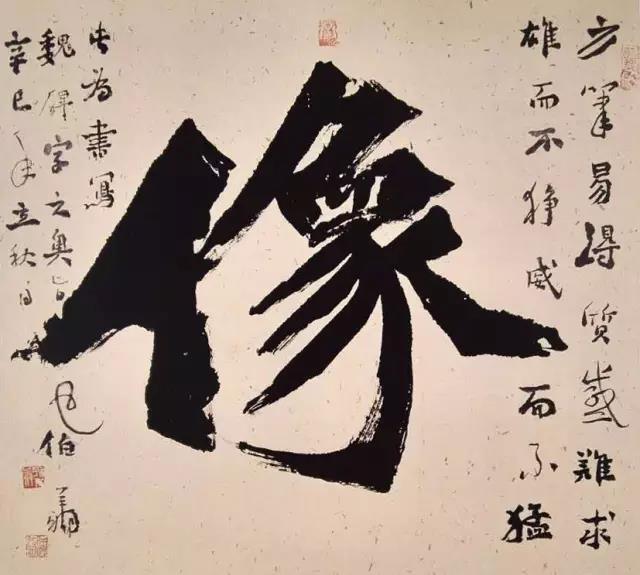 方筆易得質感難求
雄而不猙威而不猛
像
此為書寫
魏碑字之奥旨
辛巳年立秋日
伯